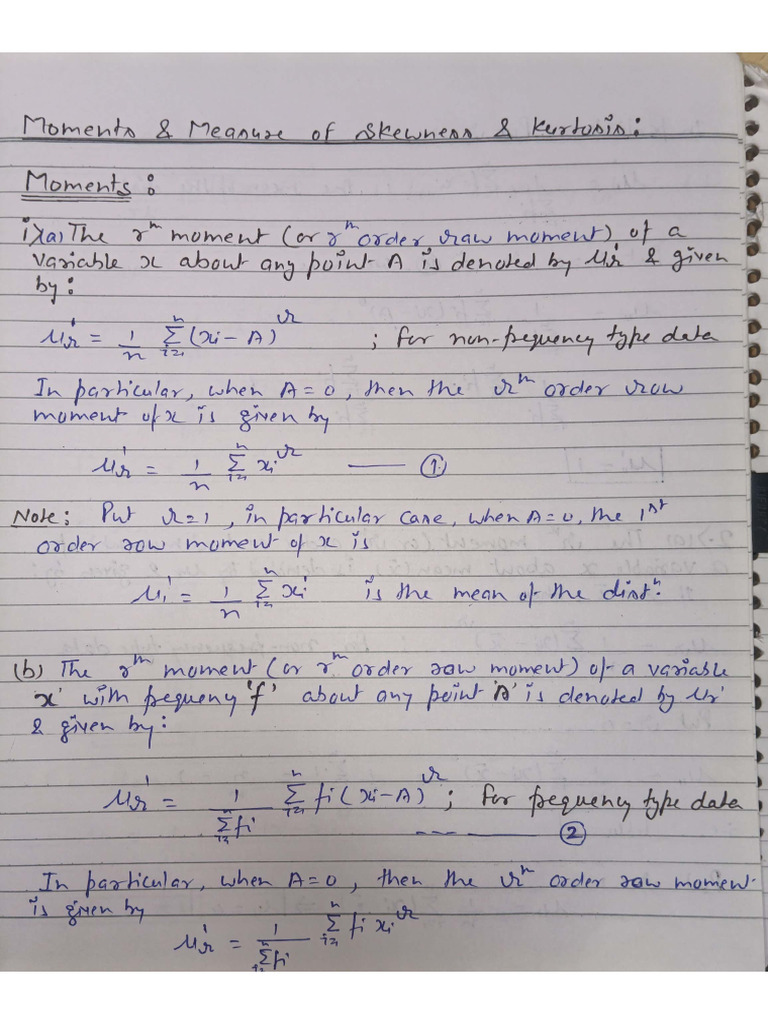 Moments & Measure of Skewness & Kurtosis:
Moments :
i)(a) The rth moment (or rth order raw moment) of a
variable x about any point A is denoted by μr' & given
by:
μr' = 1/n Σ_{i=1}^{n} (xi - A)^r ; for non-frequency type data
In particular, when A=0, then the rth order raw
moment of x is given by
μr' = 1/n Σ_{i=1}^{n} xi^r —— ①
Note: Put r=1, in particular case, when A=0, the 1st
order raw moment of x is
μ1' = 1/n Σ_{i=1}^{n} xi is the mean of the distn.
(b) The rth moment (or rth order raw moment) of a variable
'x' with frequency 'f' about any point 'A' is denoted by μr'
& given by:
μr' = 1/Σ_{i=1}^{n} fi Σ_{i=1}^{n} fi (xi - A)^r ; for frequency type data
--- —— ②
In particular, when A=0, then the rth order raw moment
is given by
μr' = 1/Σ_{i=1}^{n} fi Σ_{i=1}^{n} fi xi^r